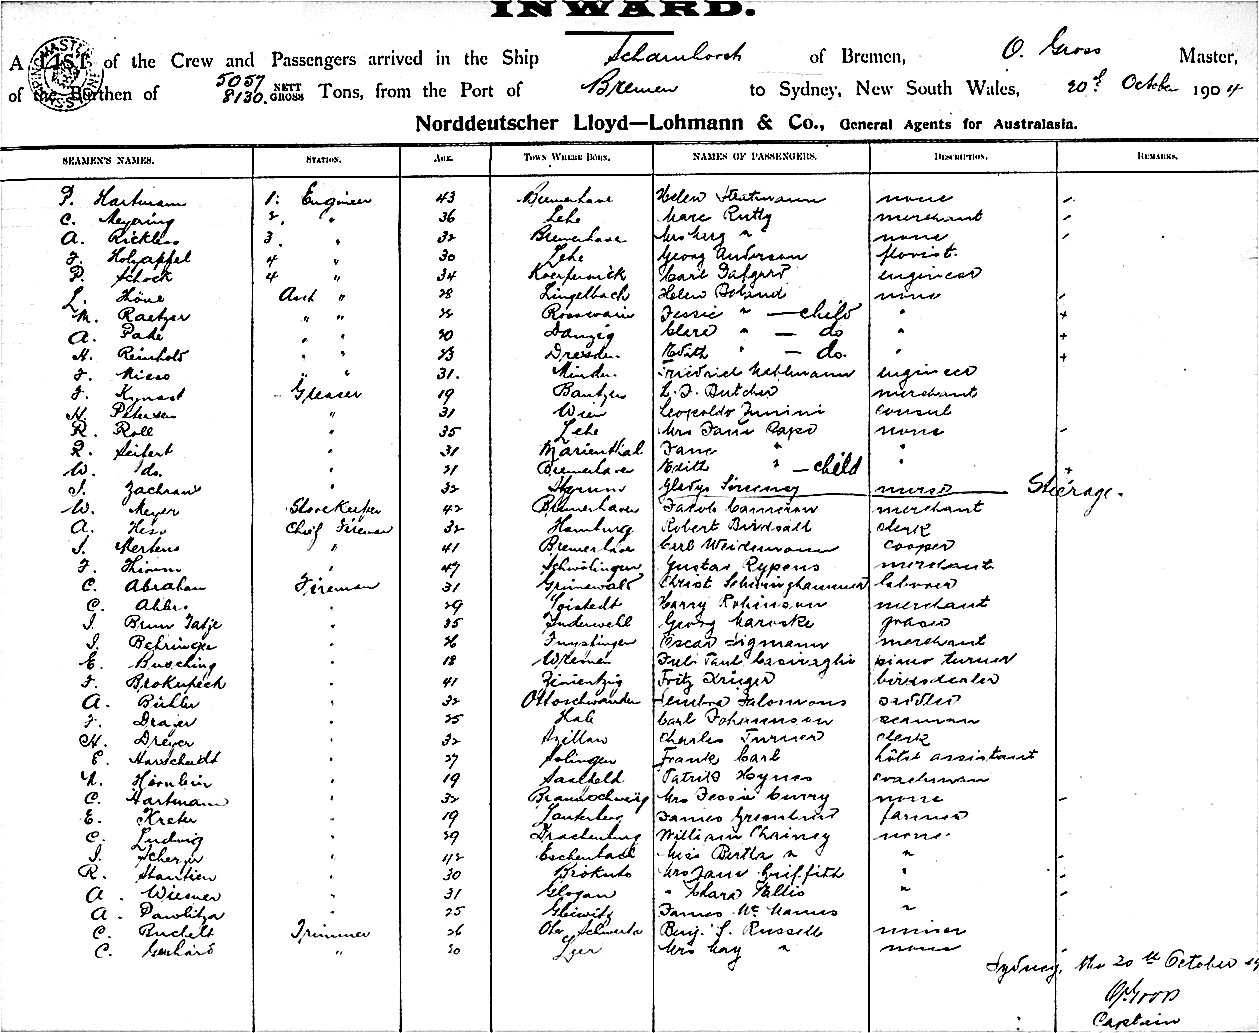 INWARD.
A LIST of the Crew and Passengers arrived in the Ship Scharnhorst of Bremen, O. Gross Master,
of the Burthen of 5057 NETT 8130 GROSS Tons, from the Port of Bremen to Sydney, New South Wales, 20th October 1904
Norddeutscher Lloyd—Lohmann & Co., General Agents for Australasia.
SEAMEN'S NAMES. STATION. AGE. TOWN WHERE BORN. NAMES OF PASSENGERS. DESCRIPTION. REMARKS.
P. Hartmann 1. Engineer 43 Bremerhave Helen none
C. Meyering 2. " 36 Lehe Marc Rutty merchant
A. 3. " 32 Bremerhave Mrs " none
F. Holzappel 4 " 30 Lehe Georg Anderson florist.
P. Schock 4 " 34 Koepenick Carl engineer
L. Höne Asst " 28 Lingelbach Helen Boland none
M. Raetzer " " Rosswein Jessie " — child "
A. Pade " " 20 Danzig Clara " — do "
H. Reinhold " " 23 Dresden Edith " — do. "
F. " " 31. Minden Friedrich engineer
F. Kynast Greaser 19 Bautzen L. J. Butcher merchant
H. Petersen " 31 Wien Leopoldo Zunini consul
R. Roll " 35 Lehe Mrs Jane none
R. Seifert " 31 Marienthal Jane " "
W. do. " 21 Bremerhaven Edith " — child "
J. " 32 Gladys Sweeney nurse Steerage.
W. Meyer Storekeeper 42 Bremerhaven Jacob Cameron merchant
A. Hess Chief Fireman 32 Hamburg Robert Birdsall clerk
J. Mertens " 41 Bremerhave Carl Weidemann cooper
F. Thimm " 47 Gustav Rypens merchant
C. Abraham Fireman 31 Grunewald Christ Schwinghammer laborer
C. Ahlers " 29 Harry Robinson merchant
J. Brun Tatje " 35 Georg Maroske
J. Behringer " 26 Oscar Sigmann merchant
E. Busching " 18 Wremen Paul piano turner
F. Brokupech " 41 Zinientzig Fritz Krüger birdsdealer
A. Bühler " 32 Ottoschwanden Salomons saddler
F. Drajer " 25 Carl Johannsen seaman
H. Dreyer " 32 Charles Turner clerk
E. " 27 Solingen Frank Carl hotel assistant
N. Hörnlein " 19 Saalfeld Patrick Hynes coachman
C. Hartmann " 32 Braunschweig Mrs Jessie Curry none
E. " 19 Lauterberg James farmer
C. Ludwig " 29 Drachenburg William Chainey none.
J. Scherzer " 42 Eschenbach Miss Bertha " "
R. " 30 Mrs Jane Griffith "
A. Wiesner " 31 Glogau " Clara "
A. Pawlitza " 25 Gleiwitz James Mc Manus "
C. Trimmer 26 Benj. S. Russell miner
C. Gerhard " 20 Eger Mrs May " none
Sydney, the 20th October 19
O. Gross
Captain